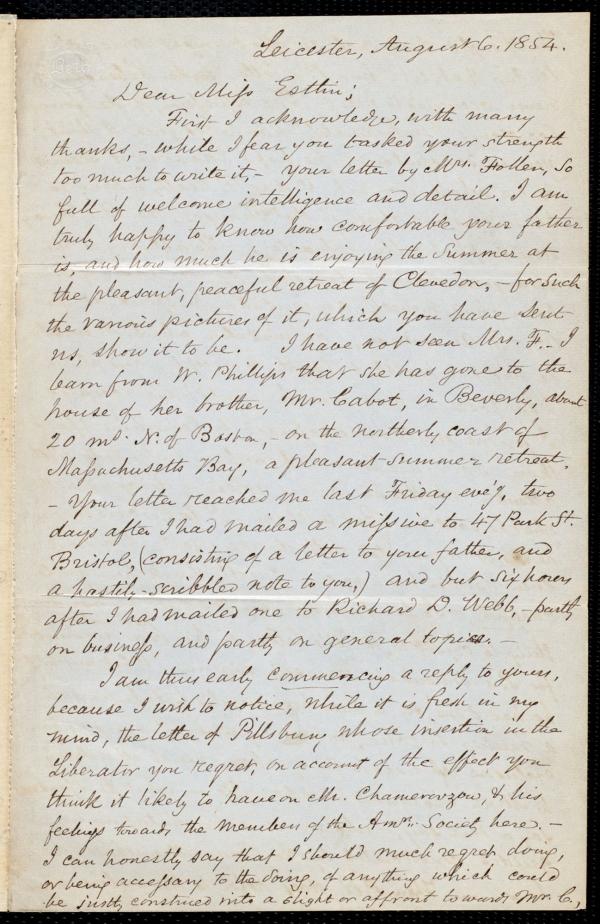 Leicester, August 6. 1854.
Dear Miss Estlin;
First I acknowledge, with many
thanks, - while I fear you tasked your strength
too much to write it, - your letter by Mrs. Follen, so
full of welcome intelligence and detail. I am
truly happy to know how comfortable your father
is, and how much he is enjoying the Summer at
the pleasant, peaceful retreat of Clevedon, - for such
the various pictures of it, which you have sent
us, show it to be. I have not seen Mrs. F. - I
learn from W. Phillips that she has gone to the
house of her brother, Mr. Cabot, in Beverly, about
20 ms. N. of Boston, - on the northerly coast of
Massachusetts Bay, a pleasant summer retreat.
- Your letter reached me last Friday eve'g, two
days after I had mailed a missive to 47 Park St.
Bristol, (consisting of a letter to your father, and
a hastily-scribbled note to you,) and but six hours
after I had mailed one to Richard D. Webb, - partly
on business, and partly on general topics. -
I am thus early commencing a reply to yours,
because I wish to notice, while it is fresh in my
mind, the letter of Pillsbury whose insertion in the
Liberator you regret, on account of the effect you
think it likely to have on Mr. Chamerovzow, & his
feelings towards the members of the Amn. Society here. -
I can honestly say that I should much regret doing,
or being accessary to the doing, of anything which could
be justly construed into a slight or affront towards Mr. C.,